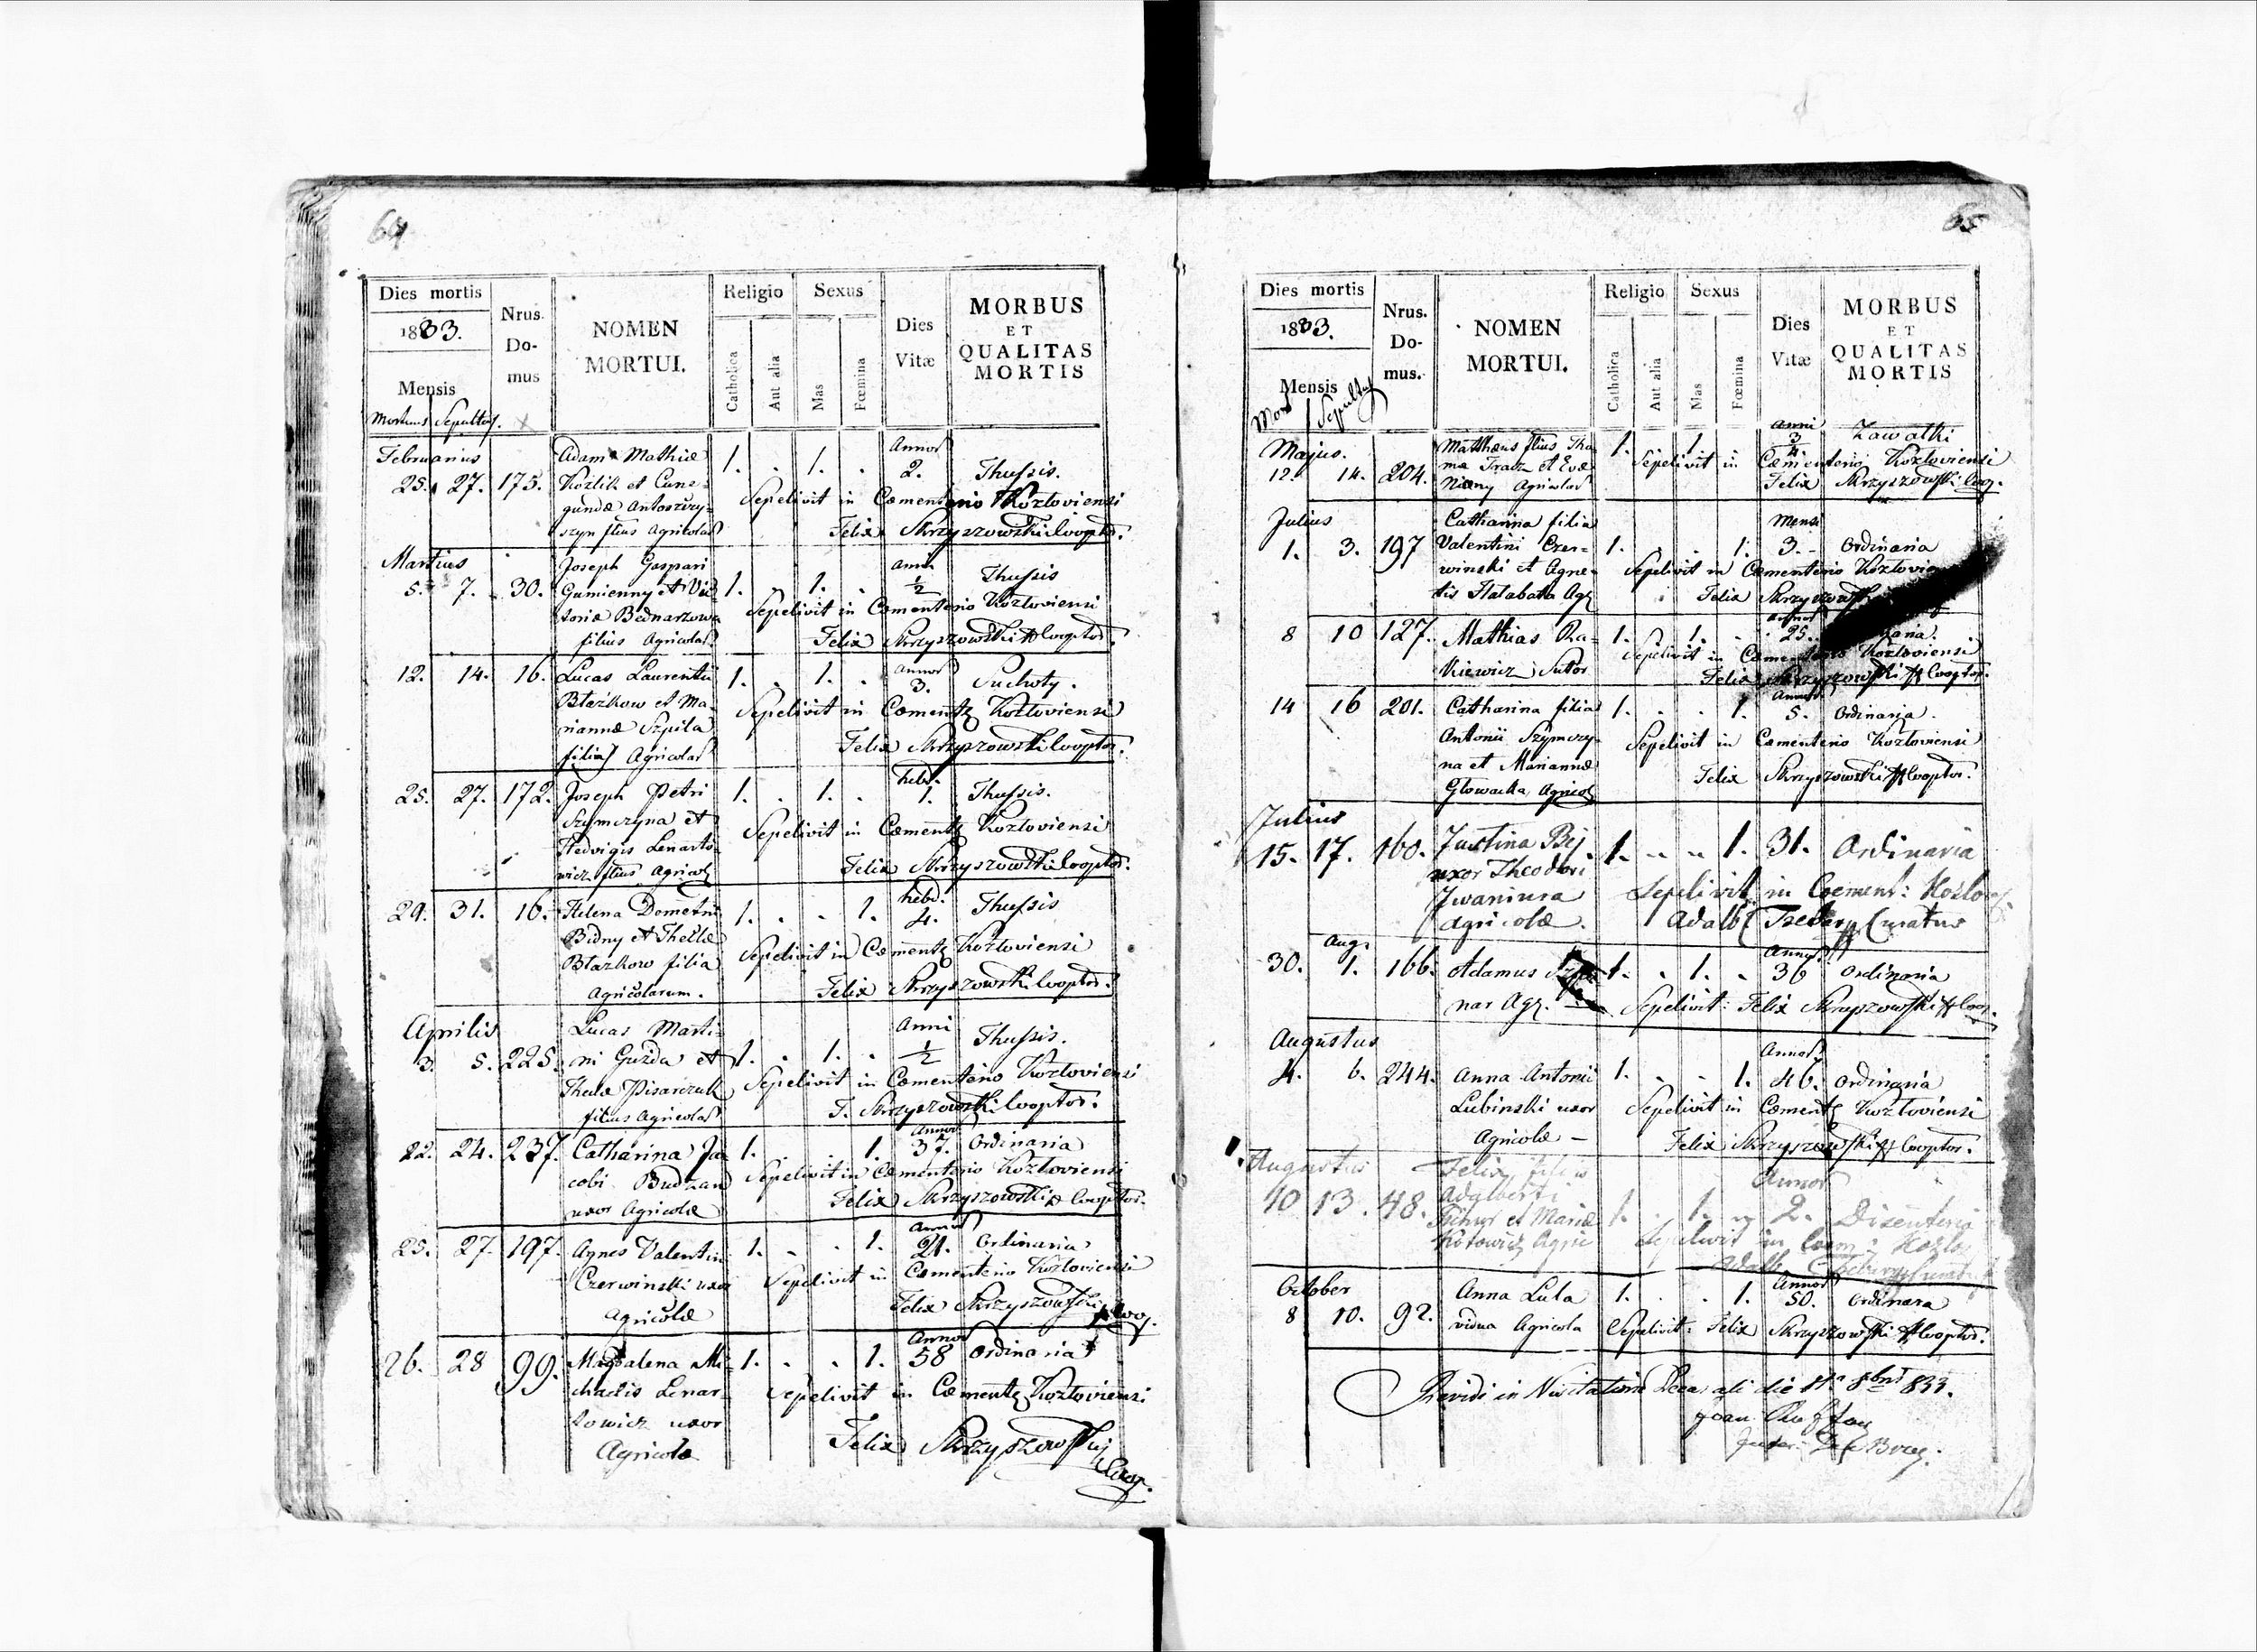 64
Dies mortis
1833.
Mensis
Mortuus Sepultus.
Nrus.
Do-
mus
NOMEN
MORTUI.
Religio
Catholica
Aut alia
Sexus
Mas
Fœmina
Dies
Vitæ
MORBUS
ET
QUALITAS
MORTIS
Februarius
25. 27. 175.
Adam Mathiæ
Kozlik et Cune-
gundæ
filius Agricolar
1. . 1. . Annor 2. Thussis.
Sepelivit in Cœmenterio Kozloviensi
Felix Skrzyszowski Cooptor.
Martius
5. 7. 30.
Joseph Gaspari
Gumienny et Vic-
toriæ Bednarzowa
filius Agricolar
1. . 1. . anni 1/2 Thussis
Sepelivit in Cœmenterio Kozloviensi
Felix Skrzyszowski Cooptor.
12. 14. 16.
Lucas Laurentii
Błażkow et Ma-
riannæ Szpila
Agricolar
1. . 1. . Annor 3. Suchoty.
Sepelivit in Cœment Kozłoviensi
Felix Skrzyszowski Cooptor.
25. 27. 172.
Joseph Petri
Szymczyna et
Hedvigis Lenarto-
wicz filius Agricol
1. . 1. . hebd. 1. Thussis.
Sepelivit in Cœment Kozloviensi
Felix Skrzyszowski Cooptor.
29. 31. 16.
Helena Demetrii
Bidny et Theclæ
Błazkow filia
Agricolarum.
1. . . 1. hebd. 4. Thussis
Sepelivit in Cœment Kozłoviensi
Felix Skrzyszowski Cooptor.
Aprilis
3. 5. 225.
Lucas Marti-
ni Guzda et
Theclæ Pisarczuk
filius Agricolar
1. . 1. . Anni 1/2 Thussis.
Sepelivit in Cœmenterio Kozloviensi
F. Skrzyszowski Cooptor.
22. 24. 237.
Catharina Ja-
cobi Budzan
uxor Agricolæ
1. . . 1. Annor 37. Ordinaria
Sepelivit in Cœmenterio Kozloviensi
Felix Skrzyszowski Cooptor.
25. 27. 197.
Agnes Valentini
Czerwinski uxor
Agricolæ
1. . . 1. Annor 21. Ordinaria
Sepelivit in Cœmenterio Kozłoviensi
Felix Skrzyszowski Coop.
26. 28 99.
Magdalena Mi-
chaelis Lenar-
towicz uxor
Agricolæ
1. . . 1. Annor 58 Ordinaria
Sepelivit in Cœment Kozłoviensi
Felix Skrzyszowski
Coop.
65
Dies mortis
1833.
Mensis
Mort Sepultus
Nrus.
Do-
mus.
NOMEN
MORTUI.
Religio
Catholica
Aut alia
Sexus
Mas
Fœmina
Dies
Vitæ
MORBUS
ET
QUALITAS
MORTIS
Majus.
12. 14. 204.
Matthæus filius Tho-
mæ Tracz et Evæ
Agricolar
1. 1. Anni 3/4 Zawalki
Sepelivit in Cœmenterio Kozłoviensi
Felix Skrzyszowski Coop.
Julius
1. 3. 197
Catharina filia
Valentini Czer-
winski et Agne-
tis Hałabała Agr
1. . 1. Mensi 3. Ordinaria
Sepelivit in Cœmenterio
Felix
8 10 127.
Mathias Ra-
kiewicz Sutor
1. . 1. . Annor 25.
Sepelivit in Kozłoviensi
Felix Skrzyszowski Cooptor.
14 16 201.
Catharina filia
Antonii Szymczy-
na et Mariannæ
Głowacka Agricol
1. . . 1. Annor 5. Ordinaria.
Sepelivit in Cœmenterio Kozłoviensi
Felix Skrzyszowski Cooptor.
Julius
15. 17. 160.
Justina Bej
uxor Theodori
Iwaniura
agricolæ.
1. 1. 31. Ordinaria
Sepelivit in Coement:
Adalb Curatus
30. Aug. 1. 166.
Adamus
nar Agr.
1. . 1. . Annor 36 Ordinaria
Sepelivit: Felix Skrzyszowski Coop.
Augustus
4. 6. 244.
Anna Antonii
Lubinski uxor
Agricolæ –
1. . . 1. Annor 46. Ordinaria
Sepelivit in Cœment Kozłoviensi
Felix Skrzyszowski Cooptor.
Augustus
10 13. 48.
Felix filius
Adalberti
et Mariæ
Kotowicz Agric
1. 1. Annor 2. Disenteria
Sepelivit in Coem:
Adalb
October
8 10. 92.
Anna Lula
vidua Agricola
1. . . 1. Annor 50. Ordinara
Sepelivit: Felix Skrzyszowski Cooptor.
Prævidi in Visitatione Decanali die 11a 8bris 833.
Joan